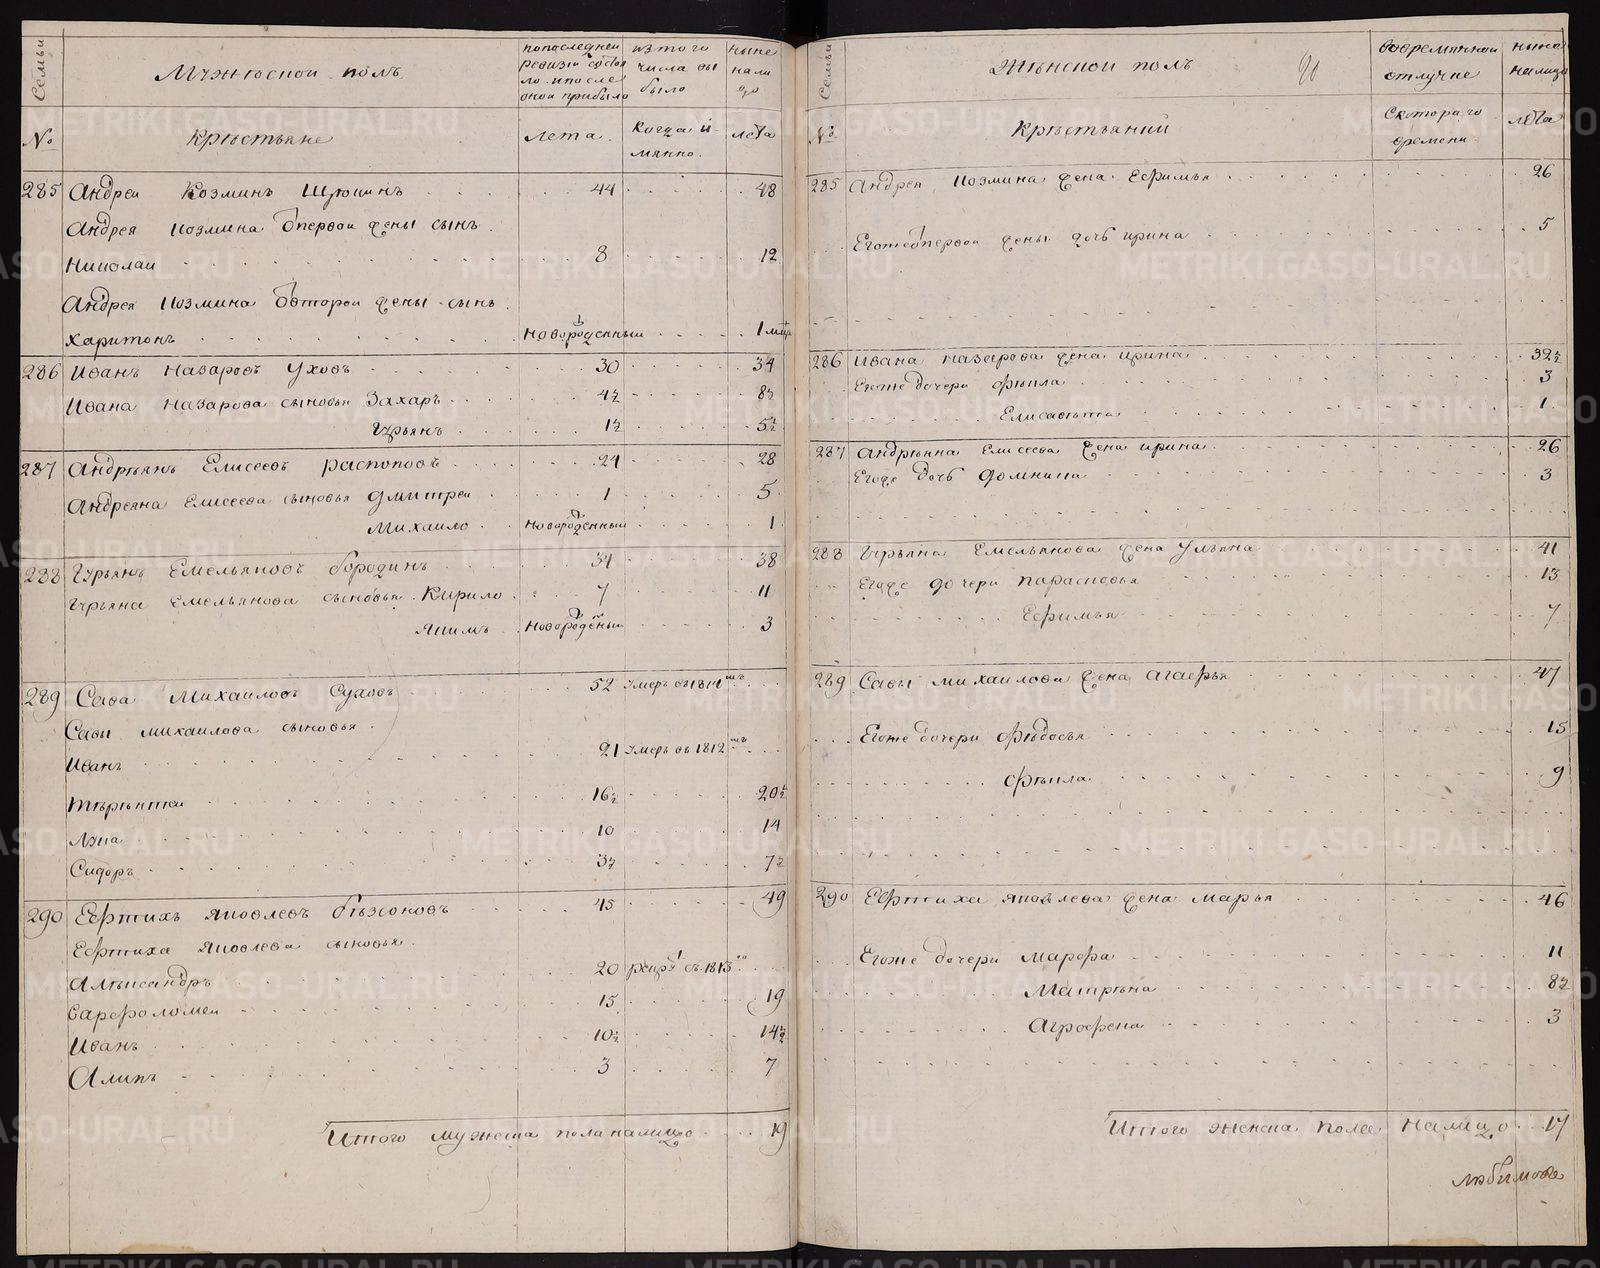 Семьи
Мужескои полъ
попоследнеи ревизіи состояло ипосле онои прибыло
изтого числа выбыло
ныне налицо
№
крѣстьяне
лета
когда имянно.
лета
285 Андреи Козминъ Щукинъ 44 48
Андрея Козмина отпервои жены сынъ
Николаи 8 12
Андрея Козмина отвторои жены сынъ
Харитонъ новорожденныи 1 мца
286 Иванъ Назаровъ Уховъ 30 34
Ивана Назарова сыновья Захаръ 4½ 8½
Гурьянъ 1½ 5½
287 Андреянъ Елисеевъ распоповъ 24 28
Андреяна Елисеева сыновья Дмитреи 1 5
Михаило новорожденныи 1
288 Гурьянъ Емельяновъ бородинъ 34 38
Гурьяна Емельянова сыновья Кирило 7 11
Якимъ новорожденыи 3
289 Сава Михаиловъ Суховъ 52 умеръ въ 1814мъ
Савы михаилова сыновья
Иванъ 21 умеръ въ 1812мъ
Терентеи 16½ 20½
Лука 10 14
Сидоръ 3½ 7½
290 Евтихъ яковлевъ бѣзсоновъ 45 49
Евтиха яковлева сыновья
Алѣксандръ 20 рекрутъ въ 1813
Варфоломеи 15 19
Иванъ 10½ 14½
Алипъ 3 7
Итого мужеска пола налицо 19
Семьи
Жѣнскои полъ
вовремяннои отлучке
ныне налицо
№
крѣстьянки
Скотораго времени
лета
285 Андрея козмина жена Ефимья 26
Егоже отпервои жены дочь ирина 5
286 Ивана назарова жена ирина 32½
Егоже дочери Фѣкла 3
Елисавѣта 1
287 Андрѣяна Елисеева жена ирина 26
Егоже дочь Домникия 3
288 Гурьяна Емельянова жена Ульяна 41
Егоже дочери парасковья 13
Ефимья 7
289 Савы михаилова жена агафья 47
Егоже дочери Фѣдосья 15
Фѣкла 9
290 Евтиха яковлева жена марья 46
Егоже дочери марфа 11
Матрѣна 8½
Агрофена 3
Итого женска пола налицо 17
METRIKI.GASO-URAL.RU